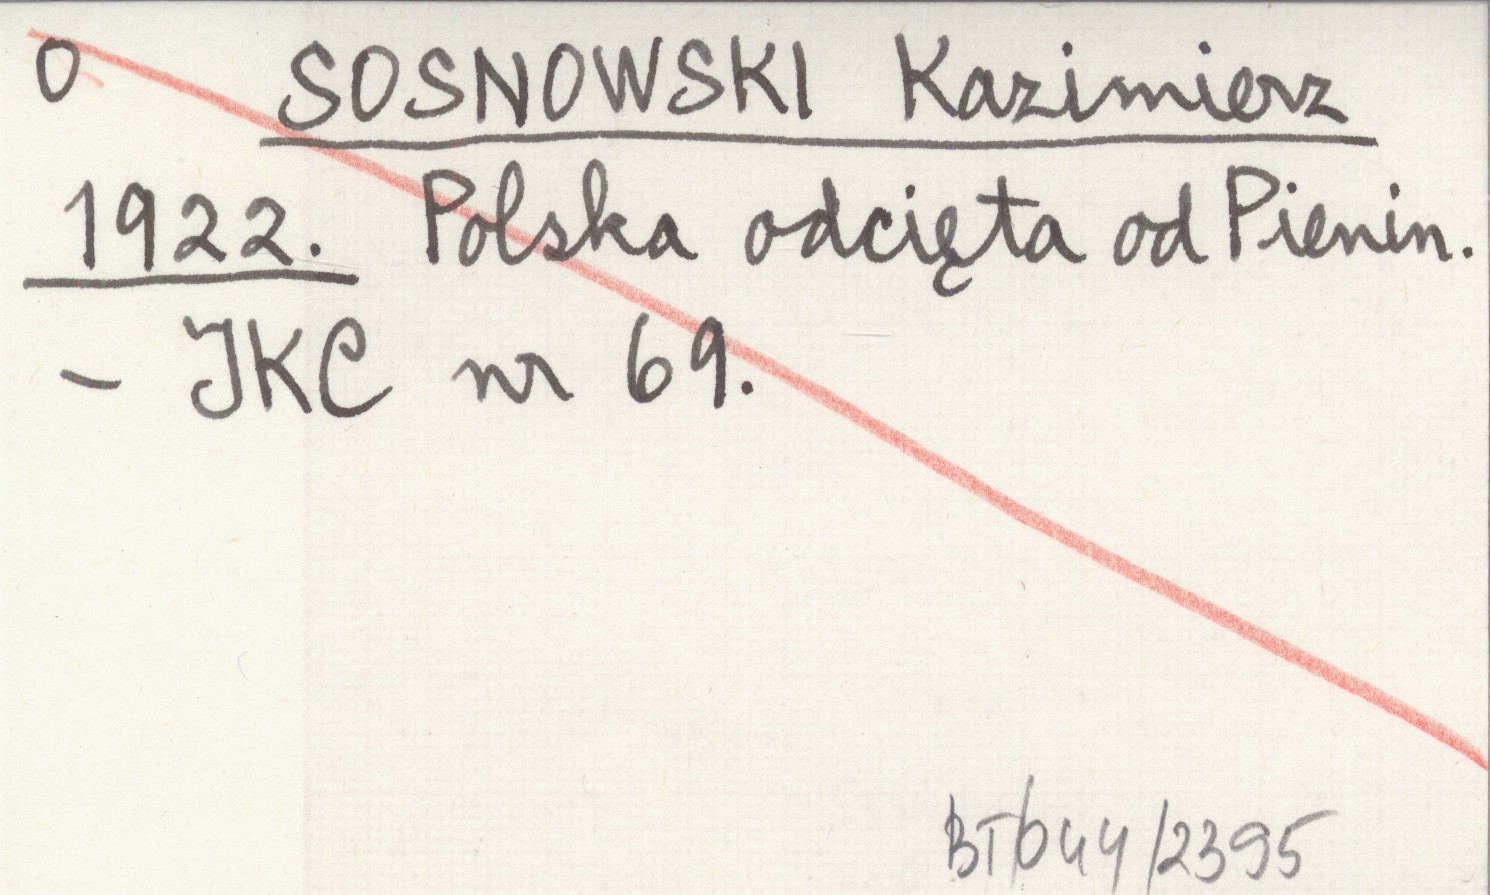 O SOSNOWSKI Kazimierz
1922. Polska odcięta od Pienin.
- IKC nr 69.
BT/644/2395